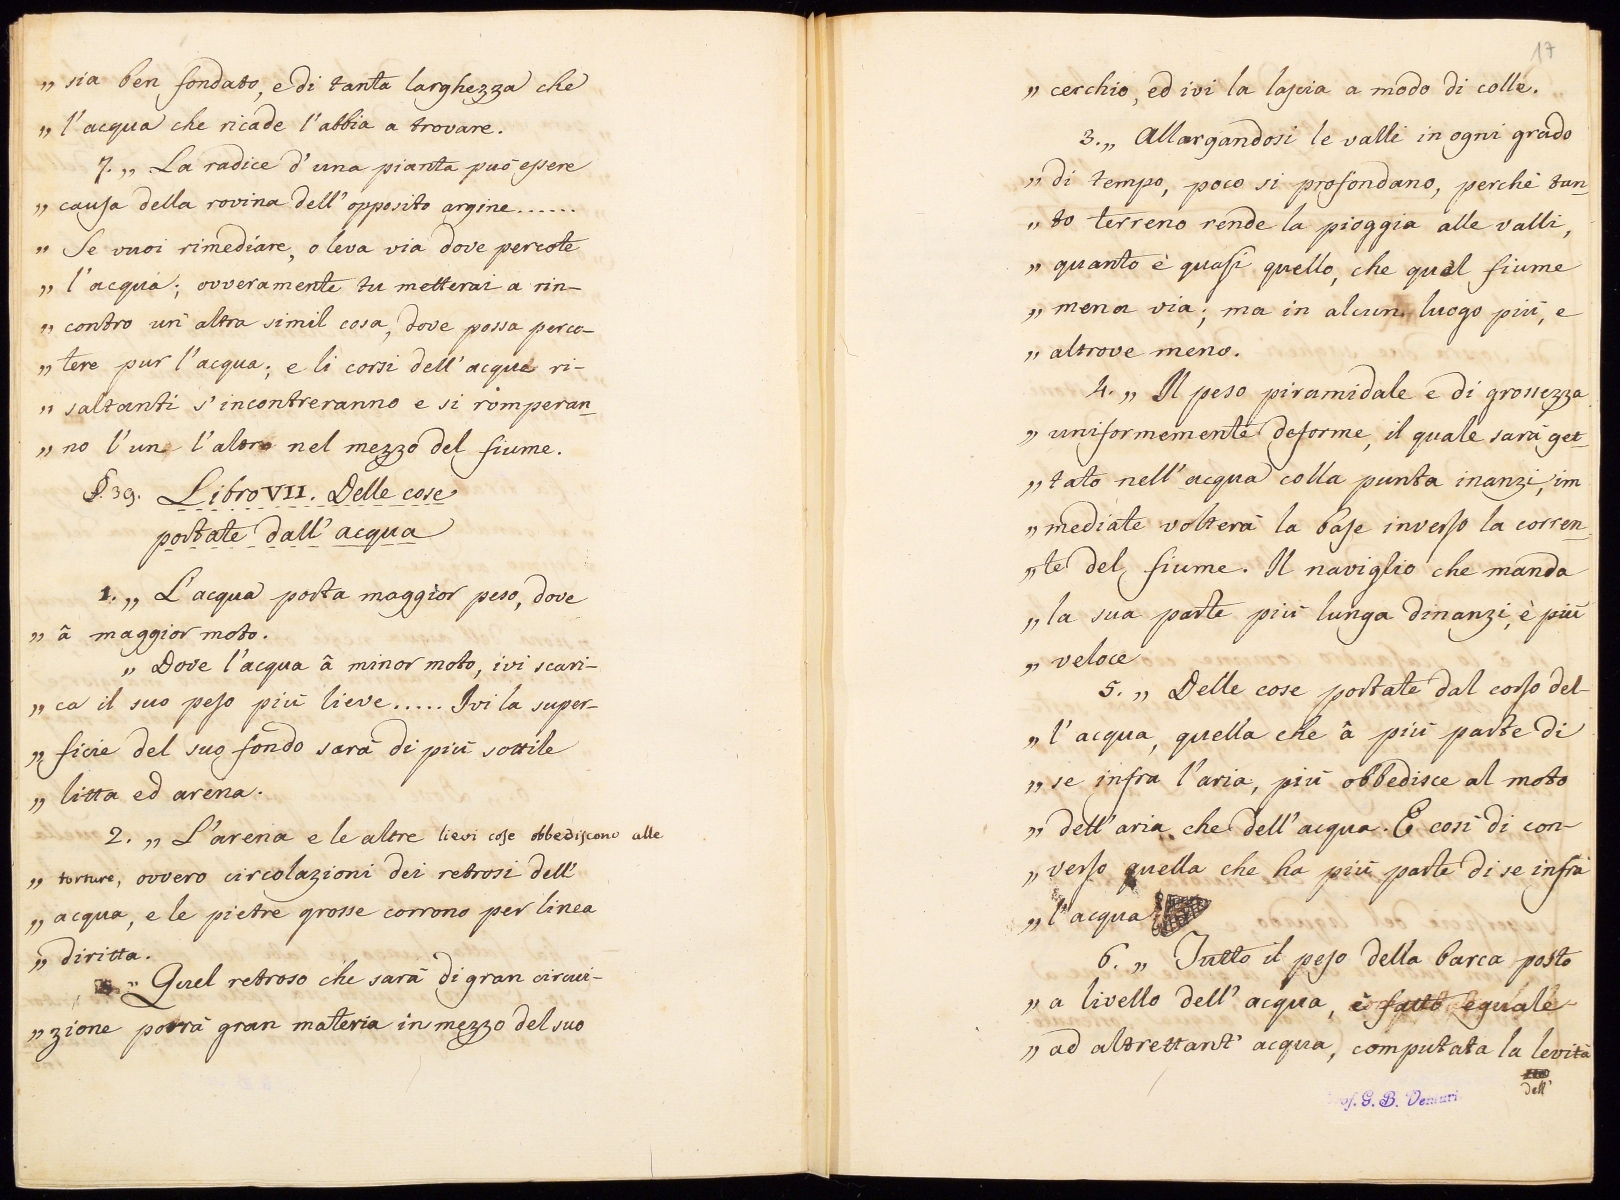 „ sia ben fondato, e di tanta larghezza che
„ l'acqua che ricade l'abbia a trovare.
7. „ La radice d'una pianta può essere
„ causa della rovina dell'opposito argine......
„ Se vuoi rimediare, o leva via dove percote
„ l'acqua; ovveramente tu metterai a rin-
„ contro un'altra simil cosa, dove possa perco-
„ tere pur l'acqua; e li corsi dell'acque ri-
„ saltanti s'incontreranno e si romperan-
„ no l'uno l'altro nel mezzo del fiume.
§. 39. Libro VII. Delle cose
portate dall'acqua
1. „ L'acqua porta maggior peso, dove
„ â maggior moto.
„ Dove l'acqua â minor moto, ivi scari-
„ ca il suo peso più lieve..... Ivi la super-
„ ficie del suo fondo sarà di più sottile
„ litta ed arena.
2. „ L'arena e le altre lievi cose obbediscono alle
„ torture, ovvero circolazioni dei retrosi dell'
„ acqua, e le pietre grosse corrono per linea
„ diritta.
„ Quel retroso che sarà di gran circui-
„ zione porrà gran materia in mezzo del suo
17
„ cerchio, ed ivi la lascia a modo di colle.
3. „ Allargandosi le valli in ogni grado
„ di tempo, poco si profondano, perchè tan-
„ to terreno rende la pioggia alle valli,
„ quanto è quasi quello, che quel fiume
„ mena via; ma in alcun luogo più, e
„ altrove meno.
4. „ Il peso piramidale e di grossezza
„ uniformemente deforme, il quale sarà get-
„ tato nell'acqua colla punta inanzi, im
„ mediate volterà la base inverso la corren-
„ te del fiume. Il naviglio che manda
„ la sua parte più lunga dinanzi, è più
„ veloce
5. „ Delle cose portate dal corso del-
„ l'acqua, quella che â più parte di
„ se infra l'aria, più obbedisce al moto
„ dell'aria che dell'acqua. E così di con-
„ verso quella che ha più parte di se infra
„ l'acqua
6. „ Tutto il peso della barca posto
„ a livello dell'acqua, è fatto eguale
„ ad altrettant'acqua, computata la levità
dell'
Prof. G. B. Venturi